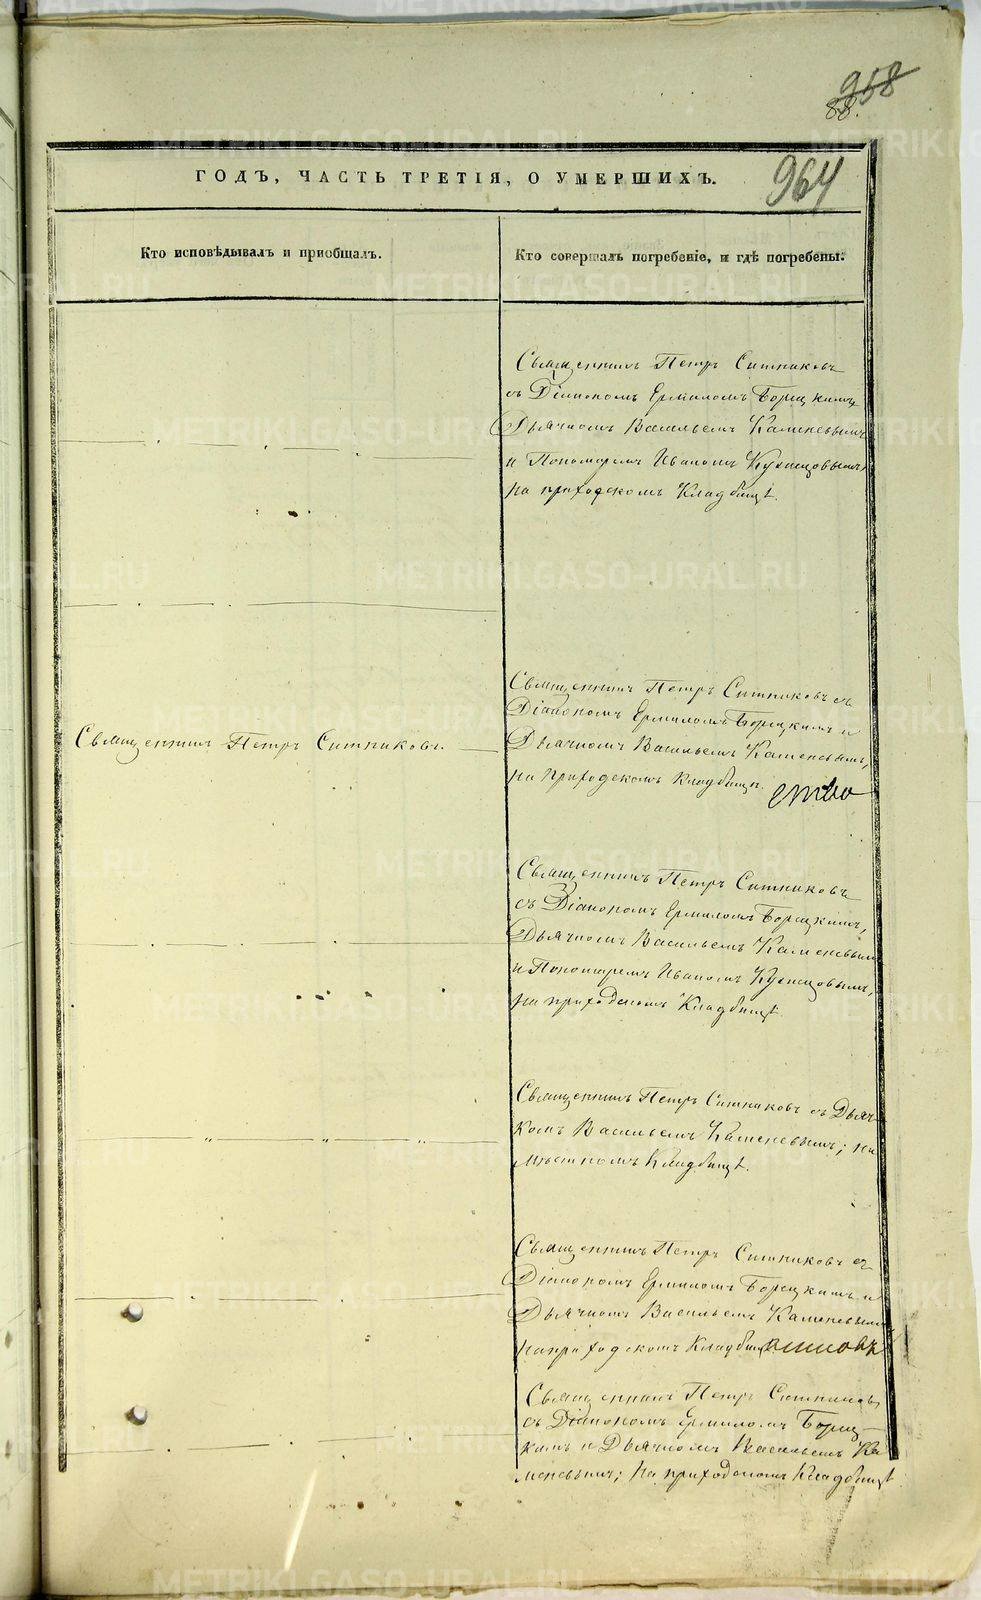 958
88.
964
ГОДЪ, ЧАСТЬ ТРЕТІЯ, О УМЕРШИХЪ.
Кто исповѣдывалъ и приобщалъ.
Кто совершалъ погребеніе, и гдѣ погребены.
Священникъ Петръ Ситниковъ
съ Діакономъ Ермиломъ Борецкимъ
Дьячкомъ Васильемъ Каменевымъ
и Пономаремъ Иваномъ Кузнецовымъ
на приходскомъ Кладбищѣ.
Священникъ Петръ Ситниковъ съ
Діакономъ Ермиломъ Борецкимъ и
Священникъ Петръ Ситниковъ.
Дьячкомъ Васильемъ Каменевымъ,
на приходскомъ Кладбищѣ.
Священникъ Петръ Ситниковъ
съ Діакономъ Ермиломъ Борецкимъ,
Дьячкомъ Васильемъ Каменевымъ
и Пономаремъ Иваномъ Кузнецовымъ,
на приходскомъ Кладбищѣ
Священникъ Петръ Ситниковъ съ Дьяч-
комъ Васильемъ Каменевымъ; на
мѣстномъ Кладбищѣ.
Священникъ Петръ Ситниковъ съ
Діакономъ Ермиломъ Борецкимъ и
Дьячкомъ Васильемъ Каменевымъ
на приходскомъ Кладбищѣ
Священникъ Петръ Ситниковъ
съ Діакономъ Ермиломъ Борец-
кимъ и Дьячкомъ Васильемъ Ка-
меневымъ; на приходскомъ Кладбищѣ
METRIKI.GASO-URAL.RU